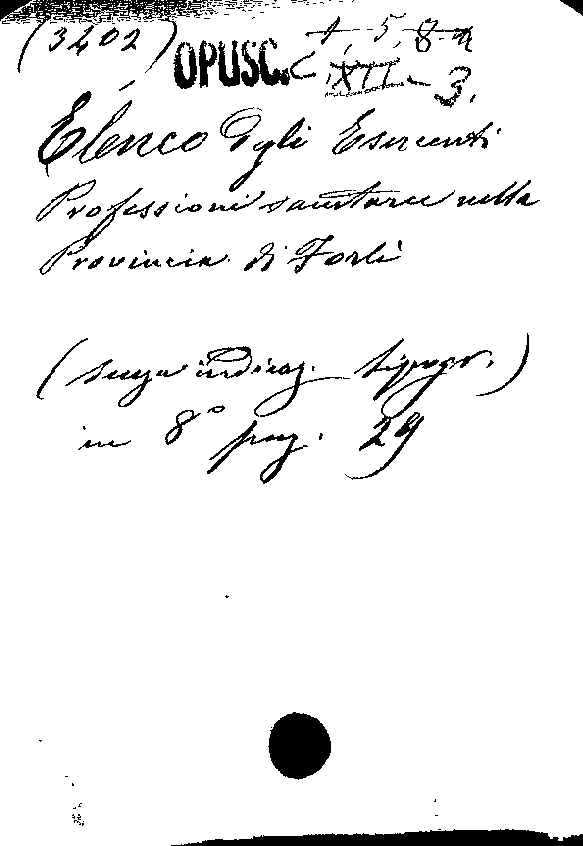 (3202) OPUSC. C. XII - 3.
Elenco degli Esercenti
Professioni sanitarie nella
Provincia di Forlì
(senza indicaz. tipogr.)
in 8° pag. 29